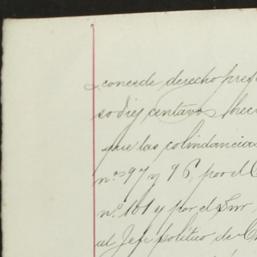 concede derecho pref
so diez centavos
que las colindancia
nos 97 y 96, por el C
no. 101 y por el Sur
al Jefe político de C